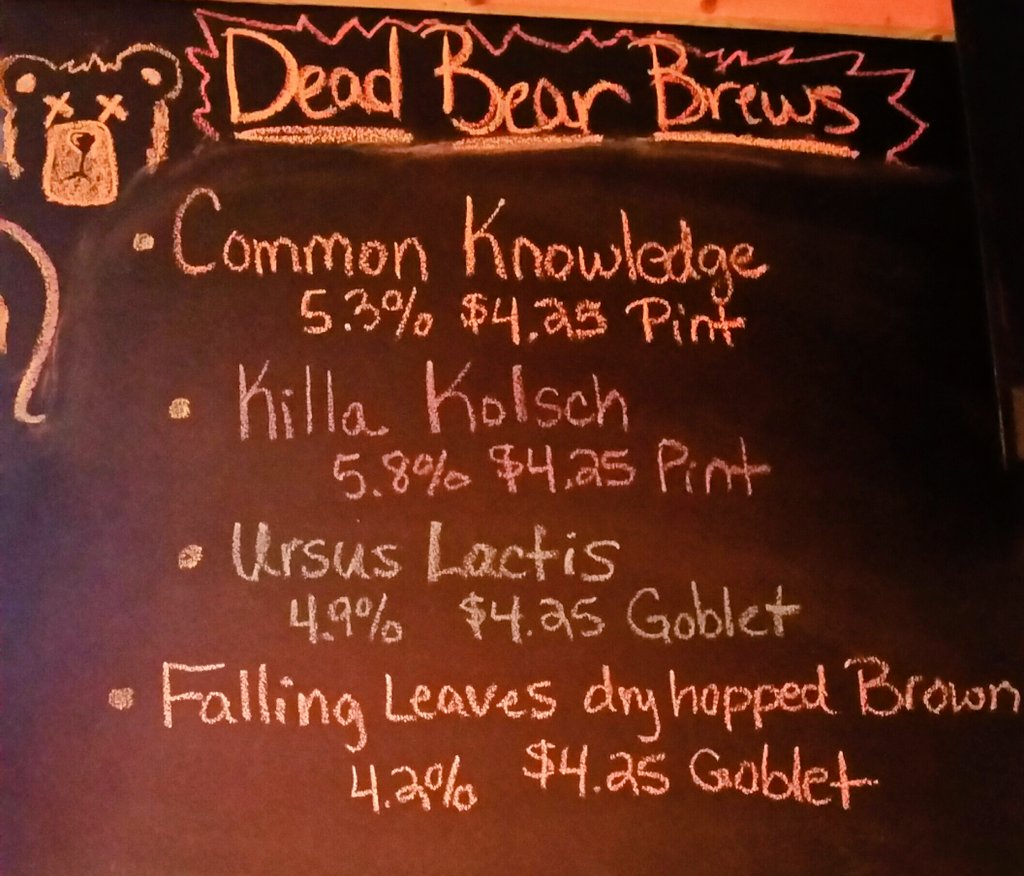 Dead Bear Brews
• Common Knowledge
5.3% $4.25 Pint
• Killa Kolsch
5.8% $4.25 Pint
• Ursus Lactis
4.9% $4.25 Goblet
• Falling Leaves dry hopped Brown
4.2% $4.25 Goblet